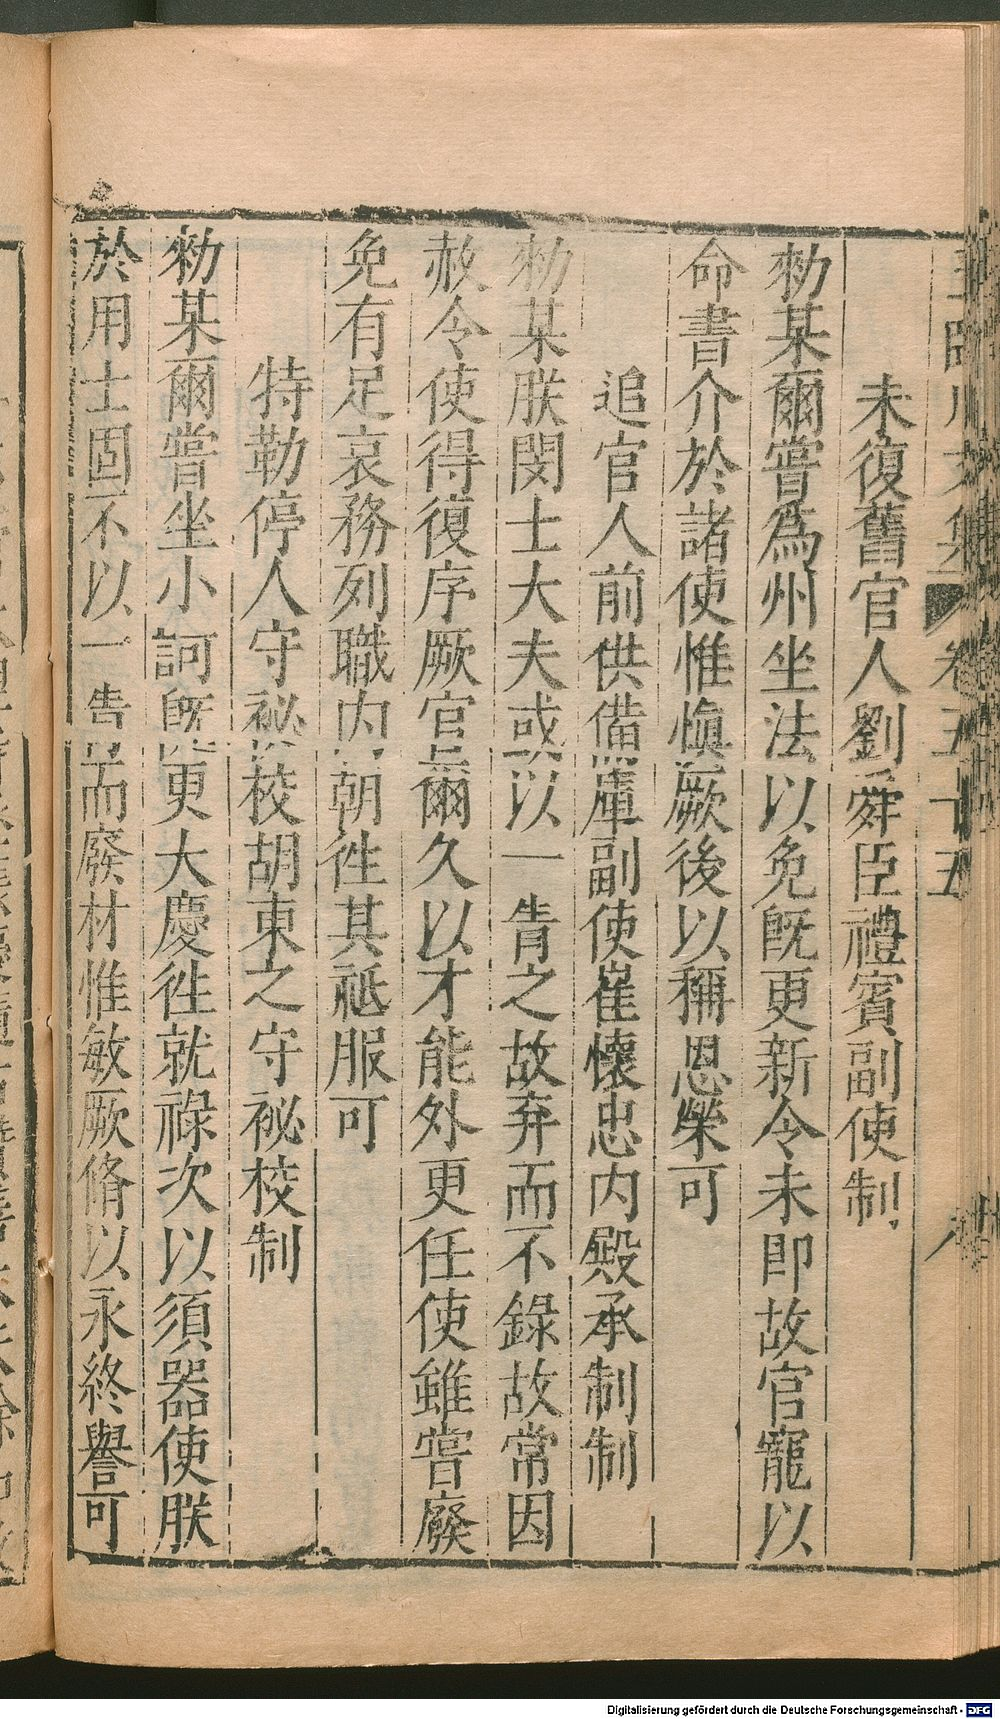 王臨川文集 卷五十五 八
未復舊官人劉舜臣禮賓副使制
勑某爾嘗為州坐法以免旣更新令未即故官寵以
命書介於諸使惟愼厥後以稱恩榮可
追官人前供備庫副使崔懷忠內殿承制制
勑某朕閔士大夫或以一眚之故弃而不錄故常因
赦令使得復序厥官爾久以才能外更任使雖嘗廢
免有足哀務列職內朝徃其祗服可
特勒停人守祕校胡東之守祕校制
勑某爾嘗坐小訶旣更大慶徃就祿次以須器使朕
於用士固不以一眚而廢材惟敏厥脩以永終譽可
Digitalisierung gefördert durch die Deutsche Forschungsgemeinschaft - DFG